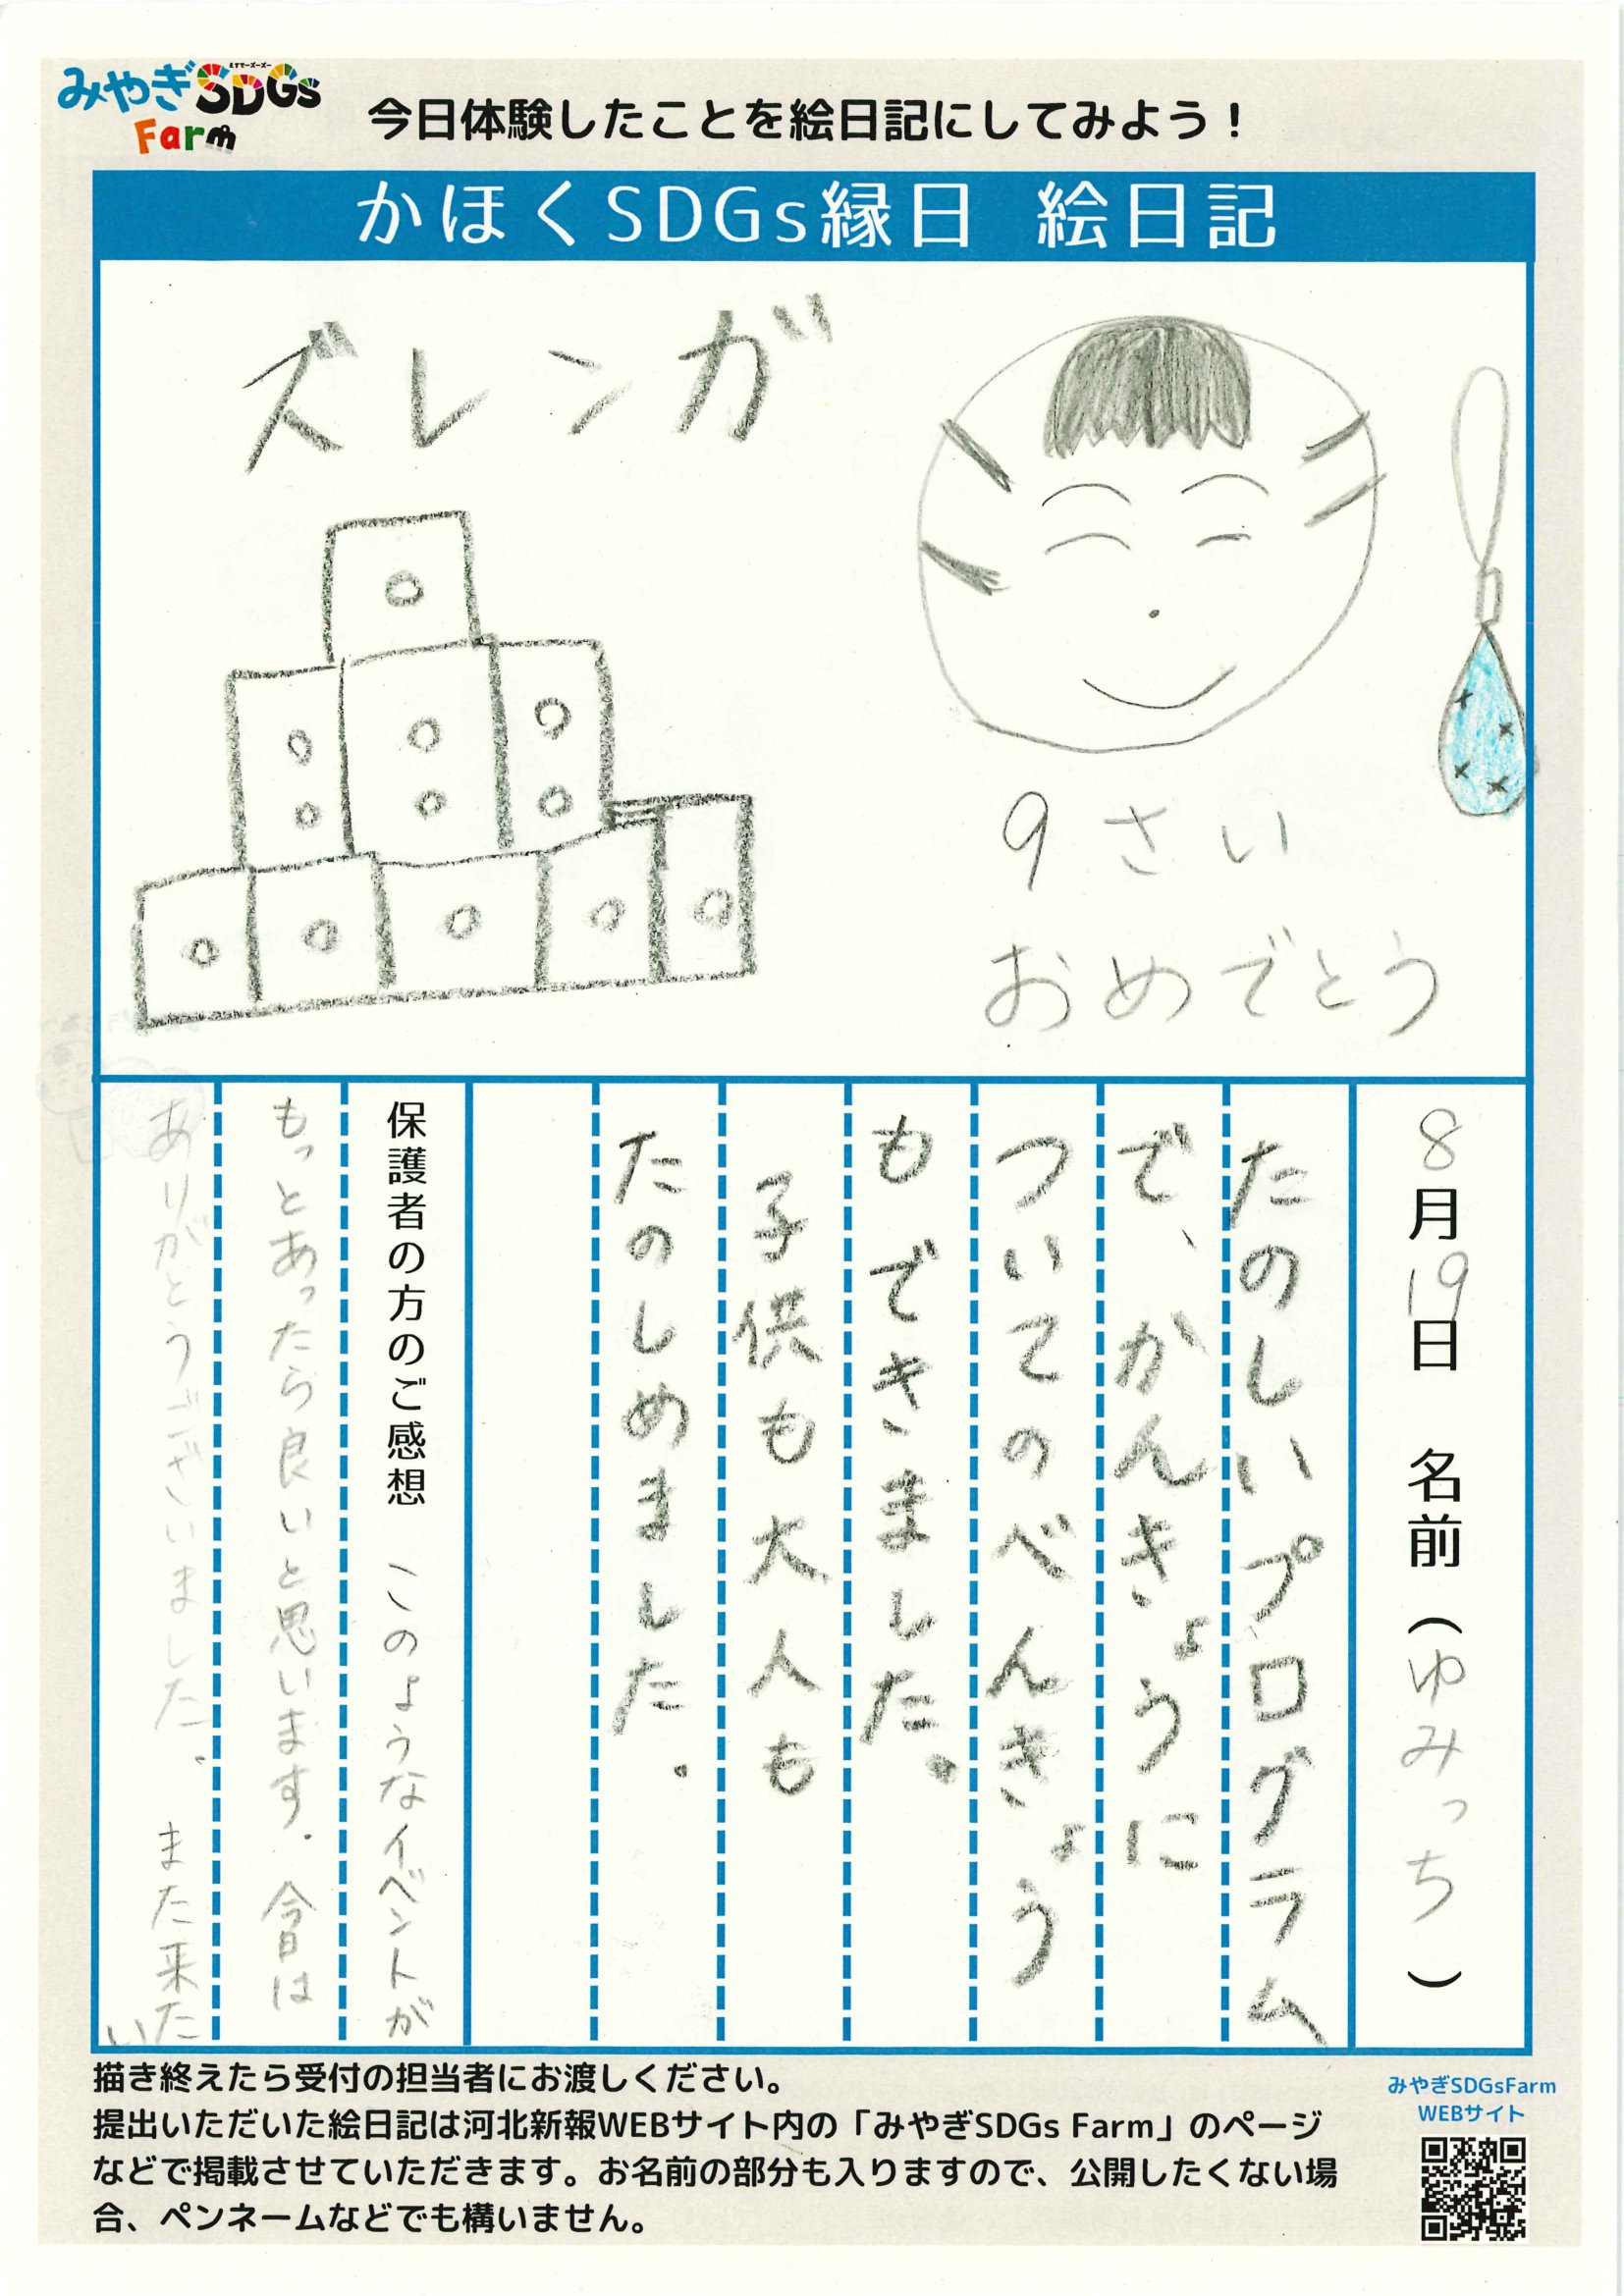 みやぎSDGs
エスディージーズ
Farm
今日体験したことを絵日記にしてみよう！
かほくSDGs縁日 絵日記
ズレンガ
9さい
おめでとう
8月19日 名前（ゆみっち）
たのしいプログラム
で、かんきょうに
ついてのべんきょう
もできました。
子供も大人も
たのしめました。
保護者の方のご感想 このようなイベントが
もっとあったら良いと思います。今日は
ありがとうございました。また来たい
描き終えたら受付の担当者にお渡しください。
提出いただいた絵日記は河北新報WEBサイト内の「みやぎSDGs Farm」のページ
などで掲載させていただきます。お名前の部分も入りますので、公開したくない場
合、ペンネームなどでも構いません。
みやぎSDGsFarm
WEBサイト